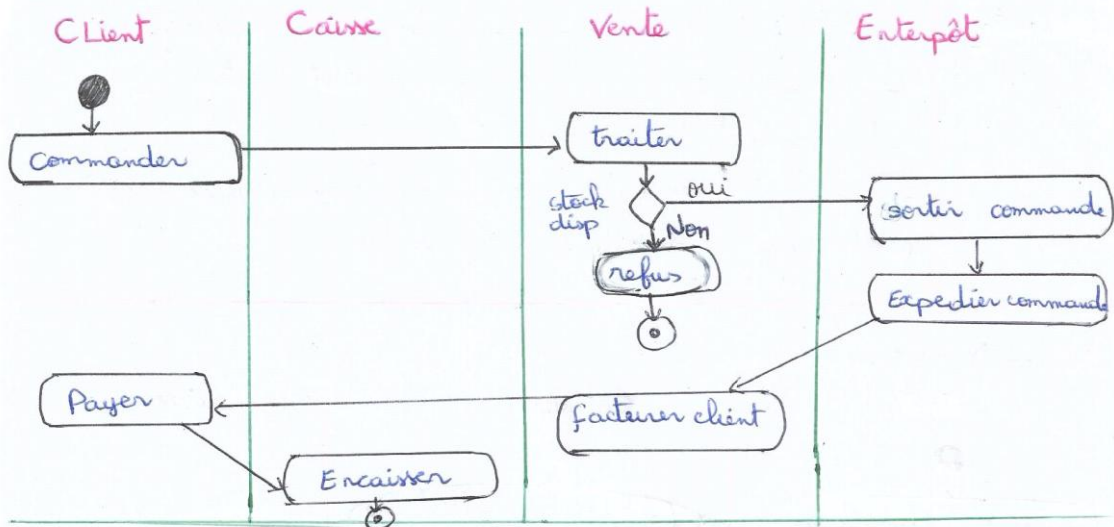 CLient
Caisse
Vente
Enterpôt
Commander
traiter
stock
disp
oui
Non
sortir commande
refus
Expedier commande
Payer
facturer client
Encaisser